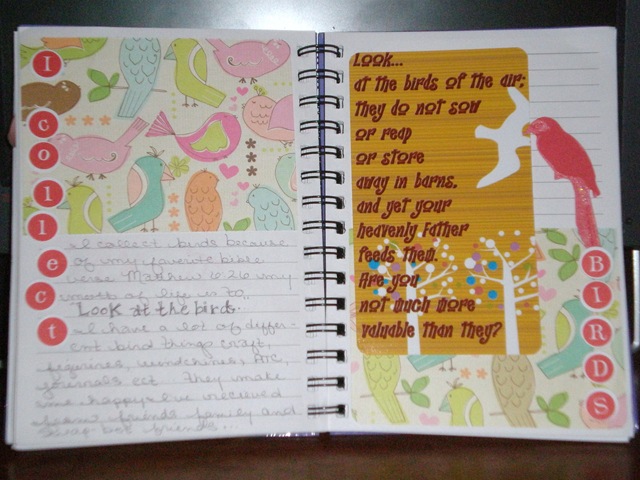 I collect
I collect birds because
of my favorite bible
verse Matthew 6:26 my
motto of life is to..
"Look at the birds.
I have a lot of differ-
ent bird things craft,
figurines, windchimes, ATC,
journals ect.. They make
me happy I've recieved
from friends family and
best friends...
Look...
at the birds of the air;
they do not sow
or reap
or store
away in barns,
and yet your
heavenly Father
feeds them.
Are you
not much more
valuable than they?
BIRDS